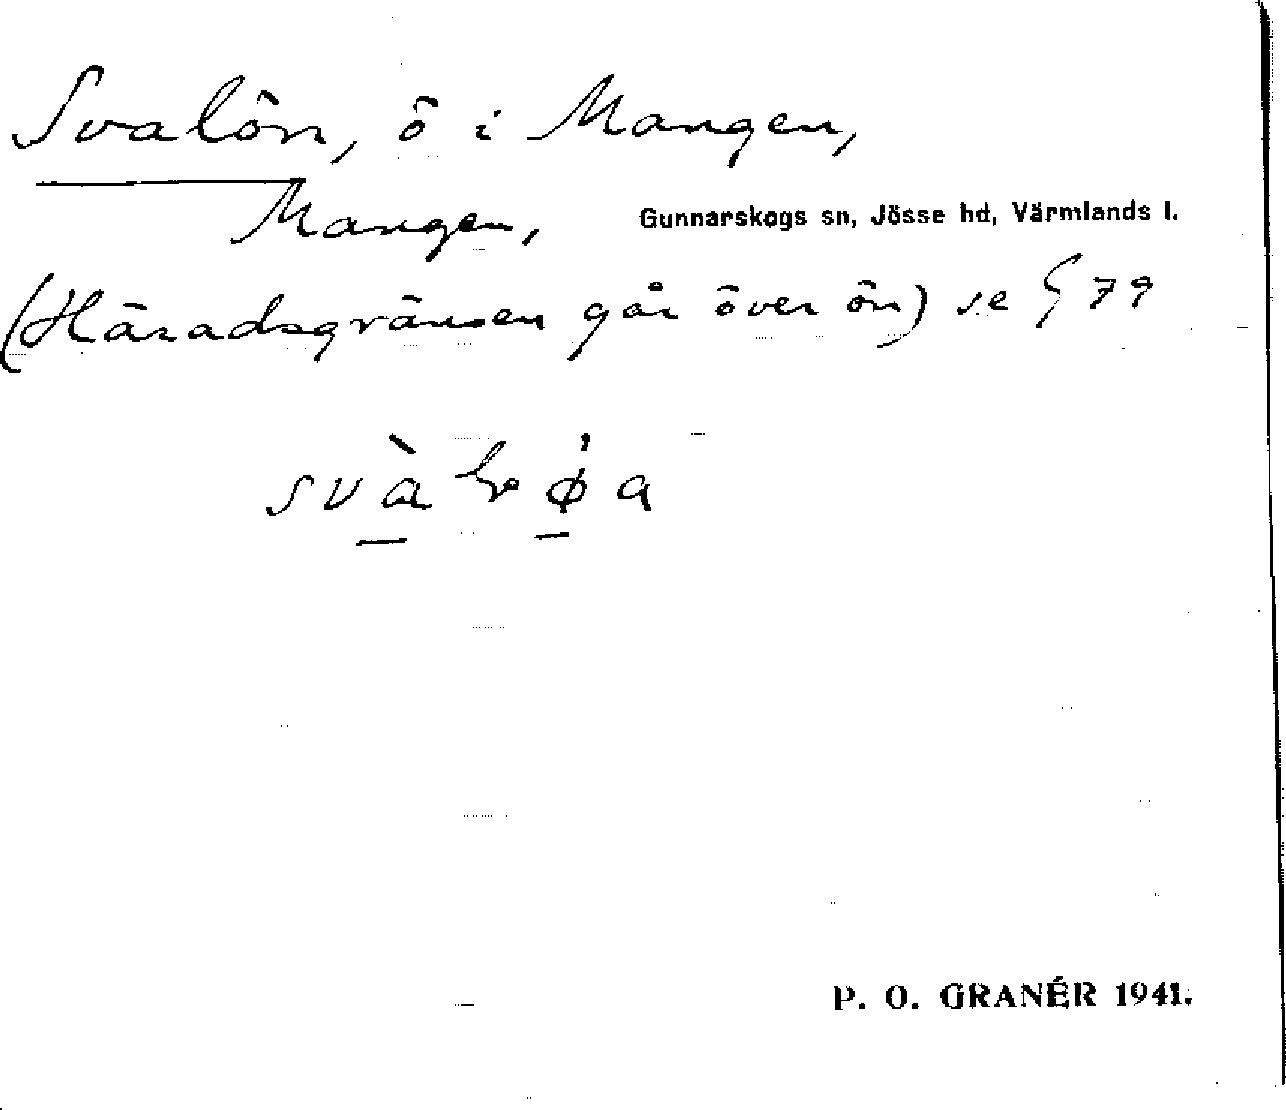 Svalön, ö i Mangen,
Mangen, Gunnarskogs sn, Jösse hd, Värmlands l.
(Häradsgränsen går över ön) se § 79
P. O. GRANÉR 1941.